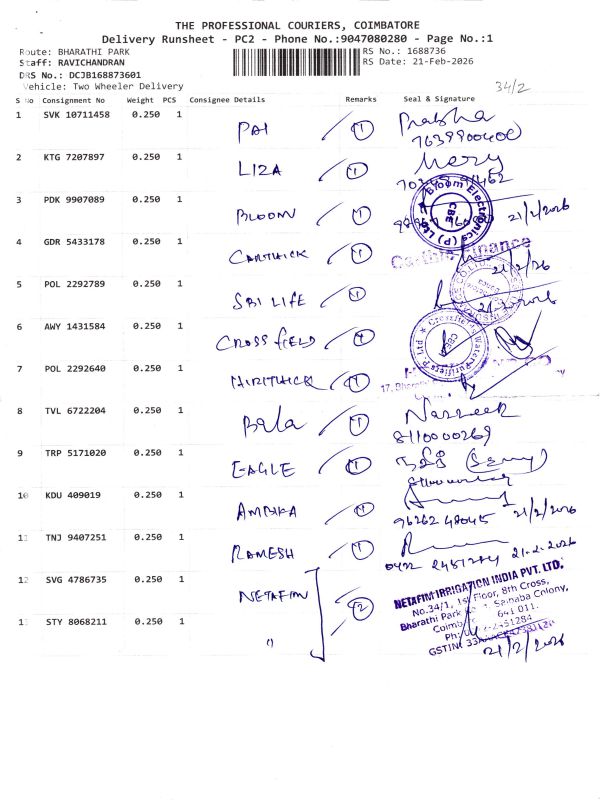 THE PROFESSIONAL COURIERS, COIMBATORE
Delivery Runsheet - PC2 - Phone No.:9047080280 - Page No.:1
Route: BHARATHI PARK
RS No.: 1688736
Staff: RAVICHANDRAN
RS Date: 21-Feb-2026
DRS No.: DCJB168873601
Vehicle: Two Wheeler Delivery
34/2
S No Consignment No Weight PCS Consignee Details Remarks Seal & Signature
1 SVK 10711458 0.250 1 PAI 1 Prabha
7639900400
2 KTG 7207897 0.250 1 LIZA 1 Mery
3 PDK 9907089 0.250 1 BLOOM 1 Bloom Electronics (P) Ltd CBE 21/2/2026
4 GDR 5433178 0.250 1 CARTHICK 1 Finance
21/2/26
5 POL 2292789 0.250 1 SBI LIFE 1
6 AWY 1431584 0.250 1 CROSS FIELD 1 CBE
7 POL 2292640 0.250 1 HIRITHICK 1
8 TVL 6722204 0.250 1 Bala 1
8110000269
9 TRP 5171020 0.250 1 EAGLE 1
10 KDU 409019 0.250 1 AMBIKA 1
96262 48045 21/2/2026
11 TNJ 9407251 0.250 1 RAMESH 1
0422 2451284 21-2-2026
12 SVG 4786735 0.250 1 NETAFIM 2 NETAFIM IRRIGATION INDIA PVT. LTD.
No.34/1, 1st Floor, 8th Cross,
Bharathi Park Sainaba Colony,
641 011.
2451284
GSTIN:
13 STY 8068211 0.250 1 "
21/2/2026